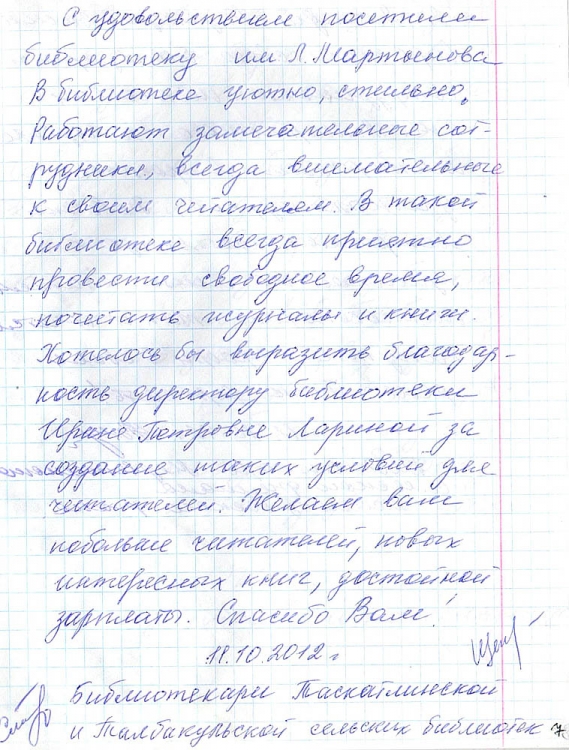 С удовольствием посетили
библиотеку им Л. Мартынова
В библиотеке уютно, стильно.
Работают замечательные сот-
рудники, всегда внимательные
к своим читателям. В такой
библиотеке всегда приятно
провести свободное время,
почитать журналы и книги.
Хотелось бы выразить благодар-
ность директору библиотеки
Ирине Петровне Лариной за
создание таких условий для
читателей. Желаем вам
побольше читателей, новых
интересных книг, достойной
зарплаты. Спасибо Вам!
18.10.2012 г
Библиотекари Таскатлинской
и Талбакульской сельских библиотек